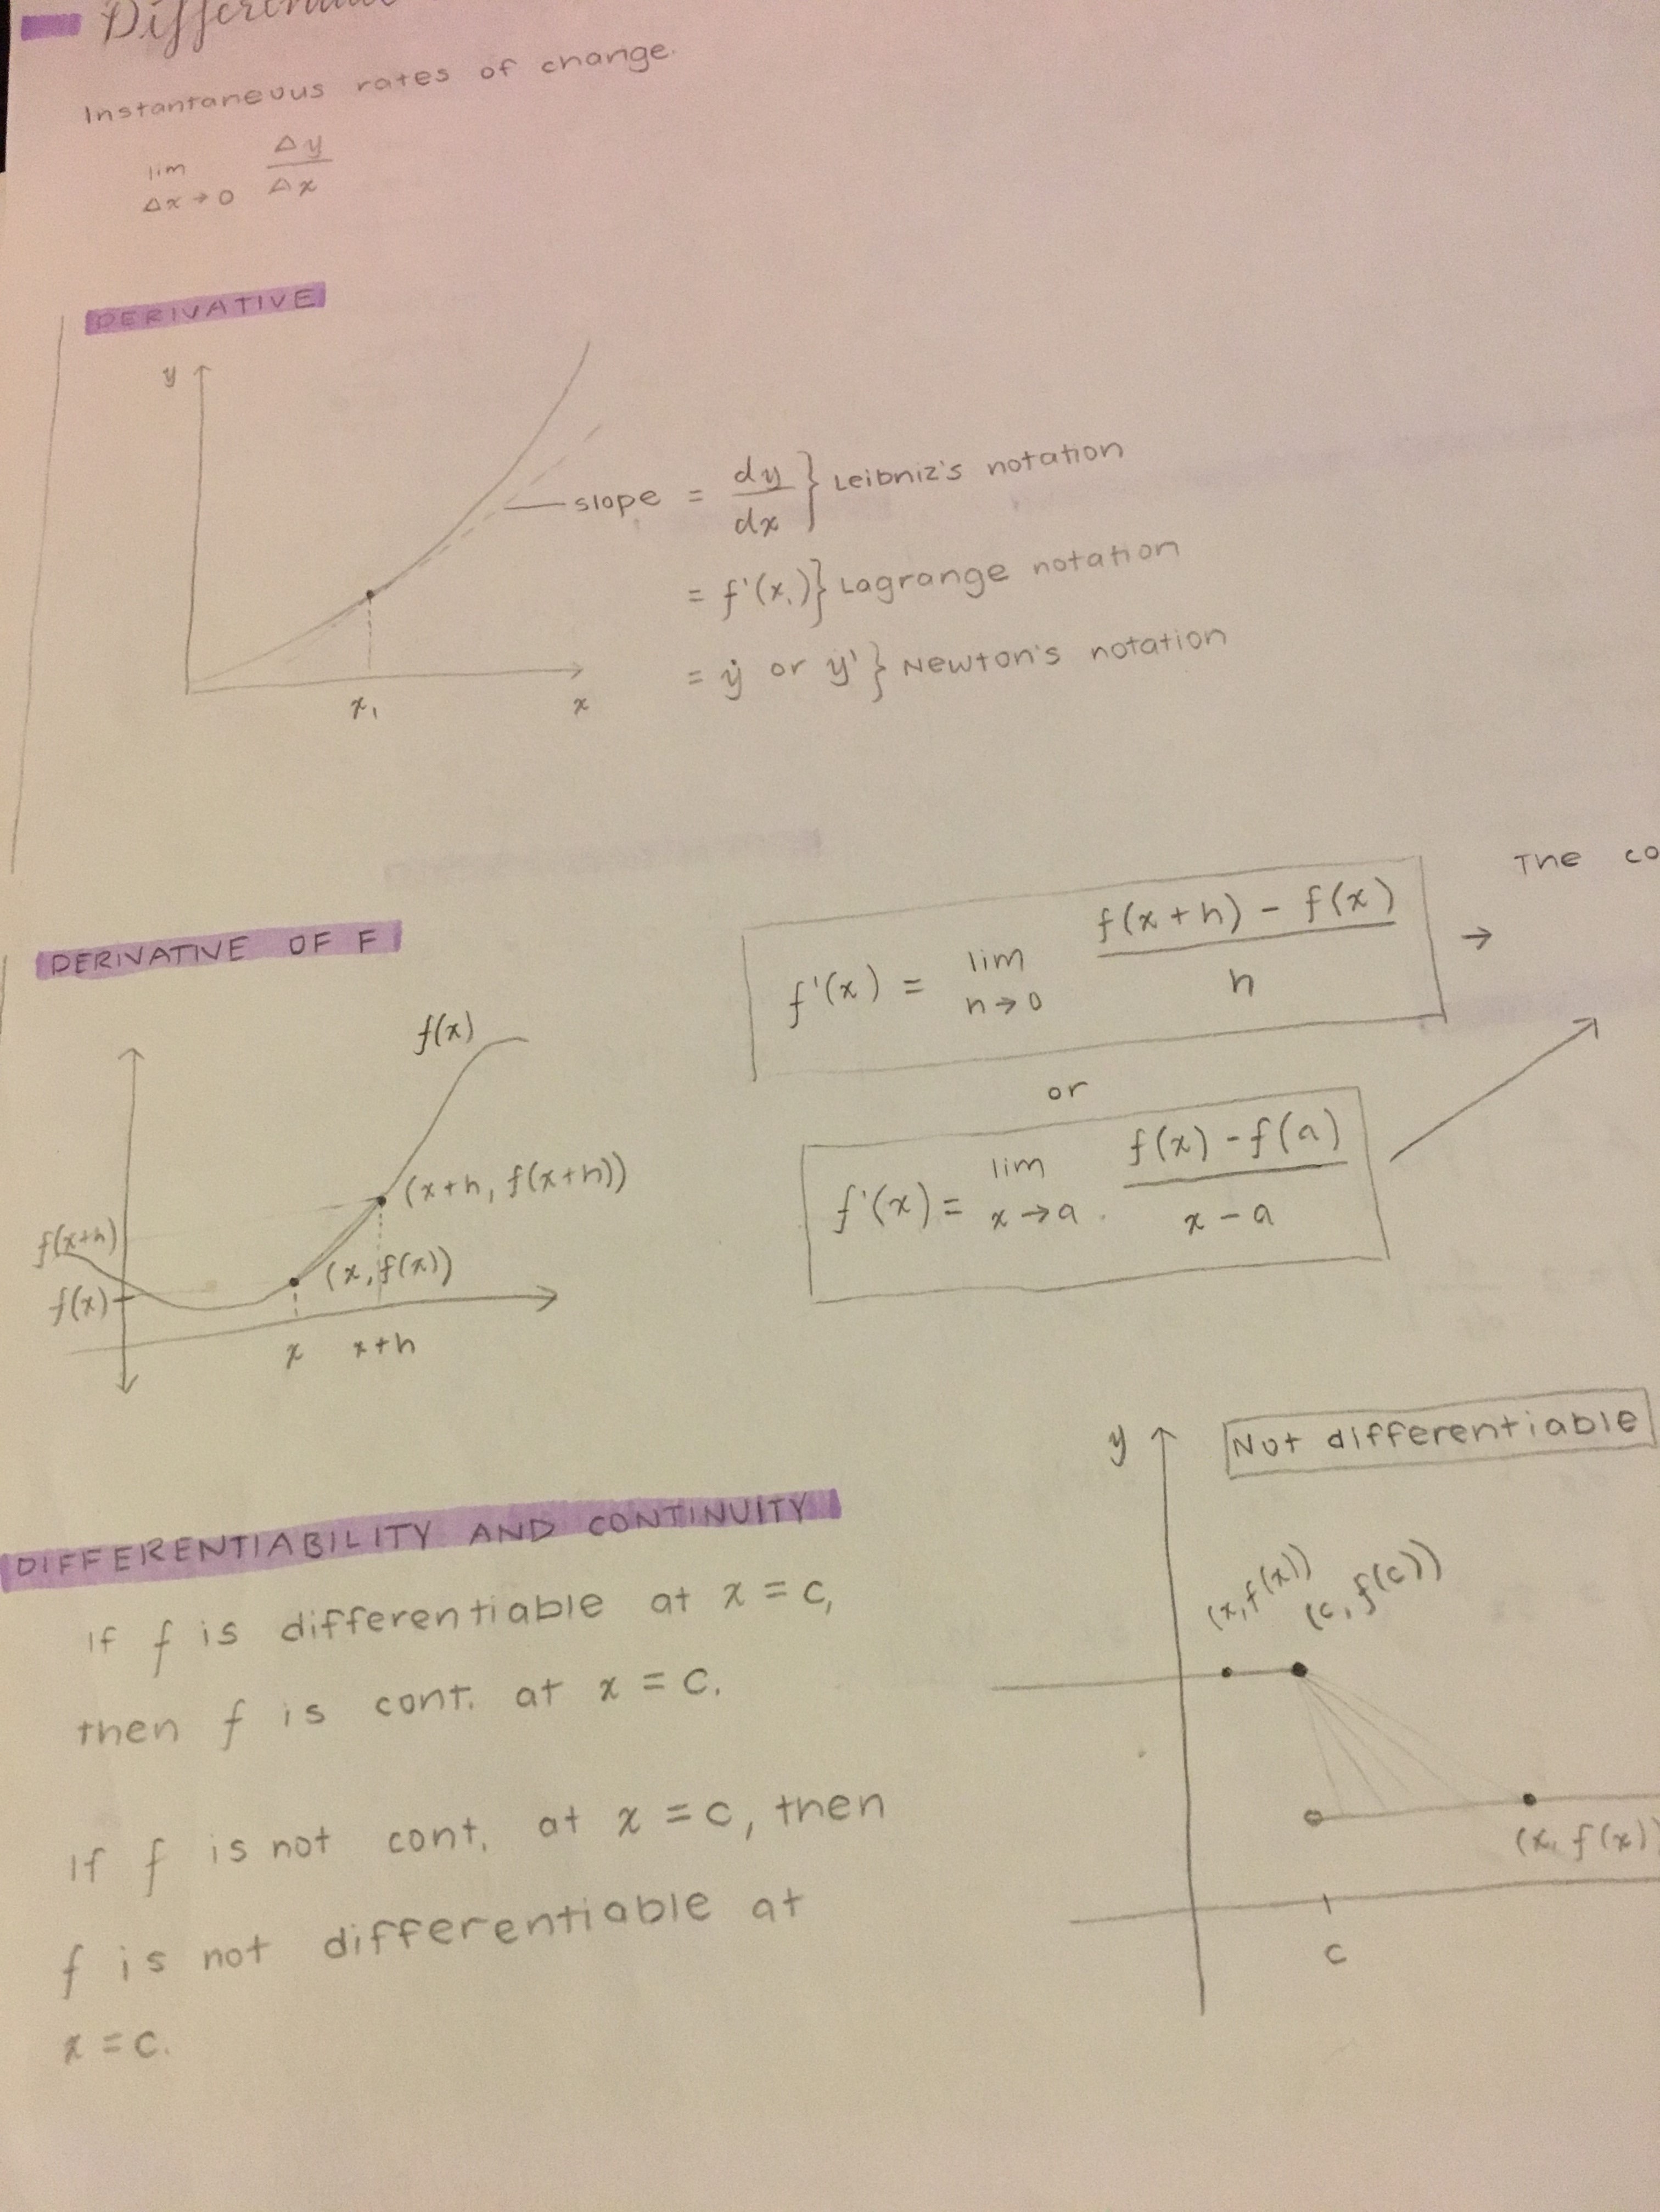 Instantaneous rates of change.
lim Δx→0 Δy/Δx
DERIVATIVE
y
slope = dy/dx } Leibniz's notation
= f'(x₁) } Lagrange notation
= ẏ or y' } Newton's notation
x₁ x
The
DERIVATIVE OF F
f'(x) = lim h→0 f(x+h) - f(x) / h →
or
f'(x) = lim x→a f(x) - f(a) / x - a
f(x)
(x+h, f(x+h))
f(x+h)
(x, f(x))
f(x)
x x+h
DIFFERENTIABILITY AND CONTINUITY
If f is differentiable at x = c,
then f is cont. at x = c.
If f is not cont. at x = c, then
f is not differentiable at
x = c.
y
Not differentiable
(x, f(x))
(c, f(c))
(x, f(x))
c